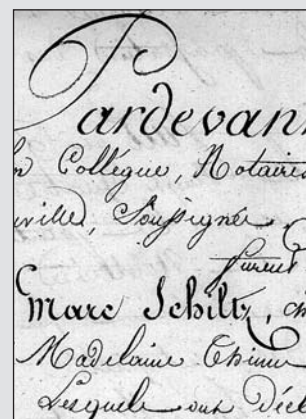 Pardevan
n Collégue, Notaires
ville, Soussignée
furent
Marc Schiltz,
Madelaine
Lesquels ont Décl